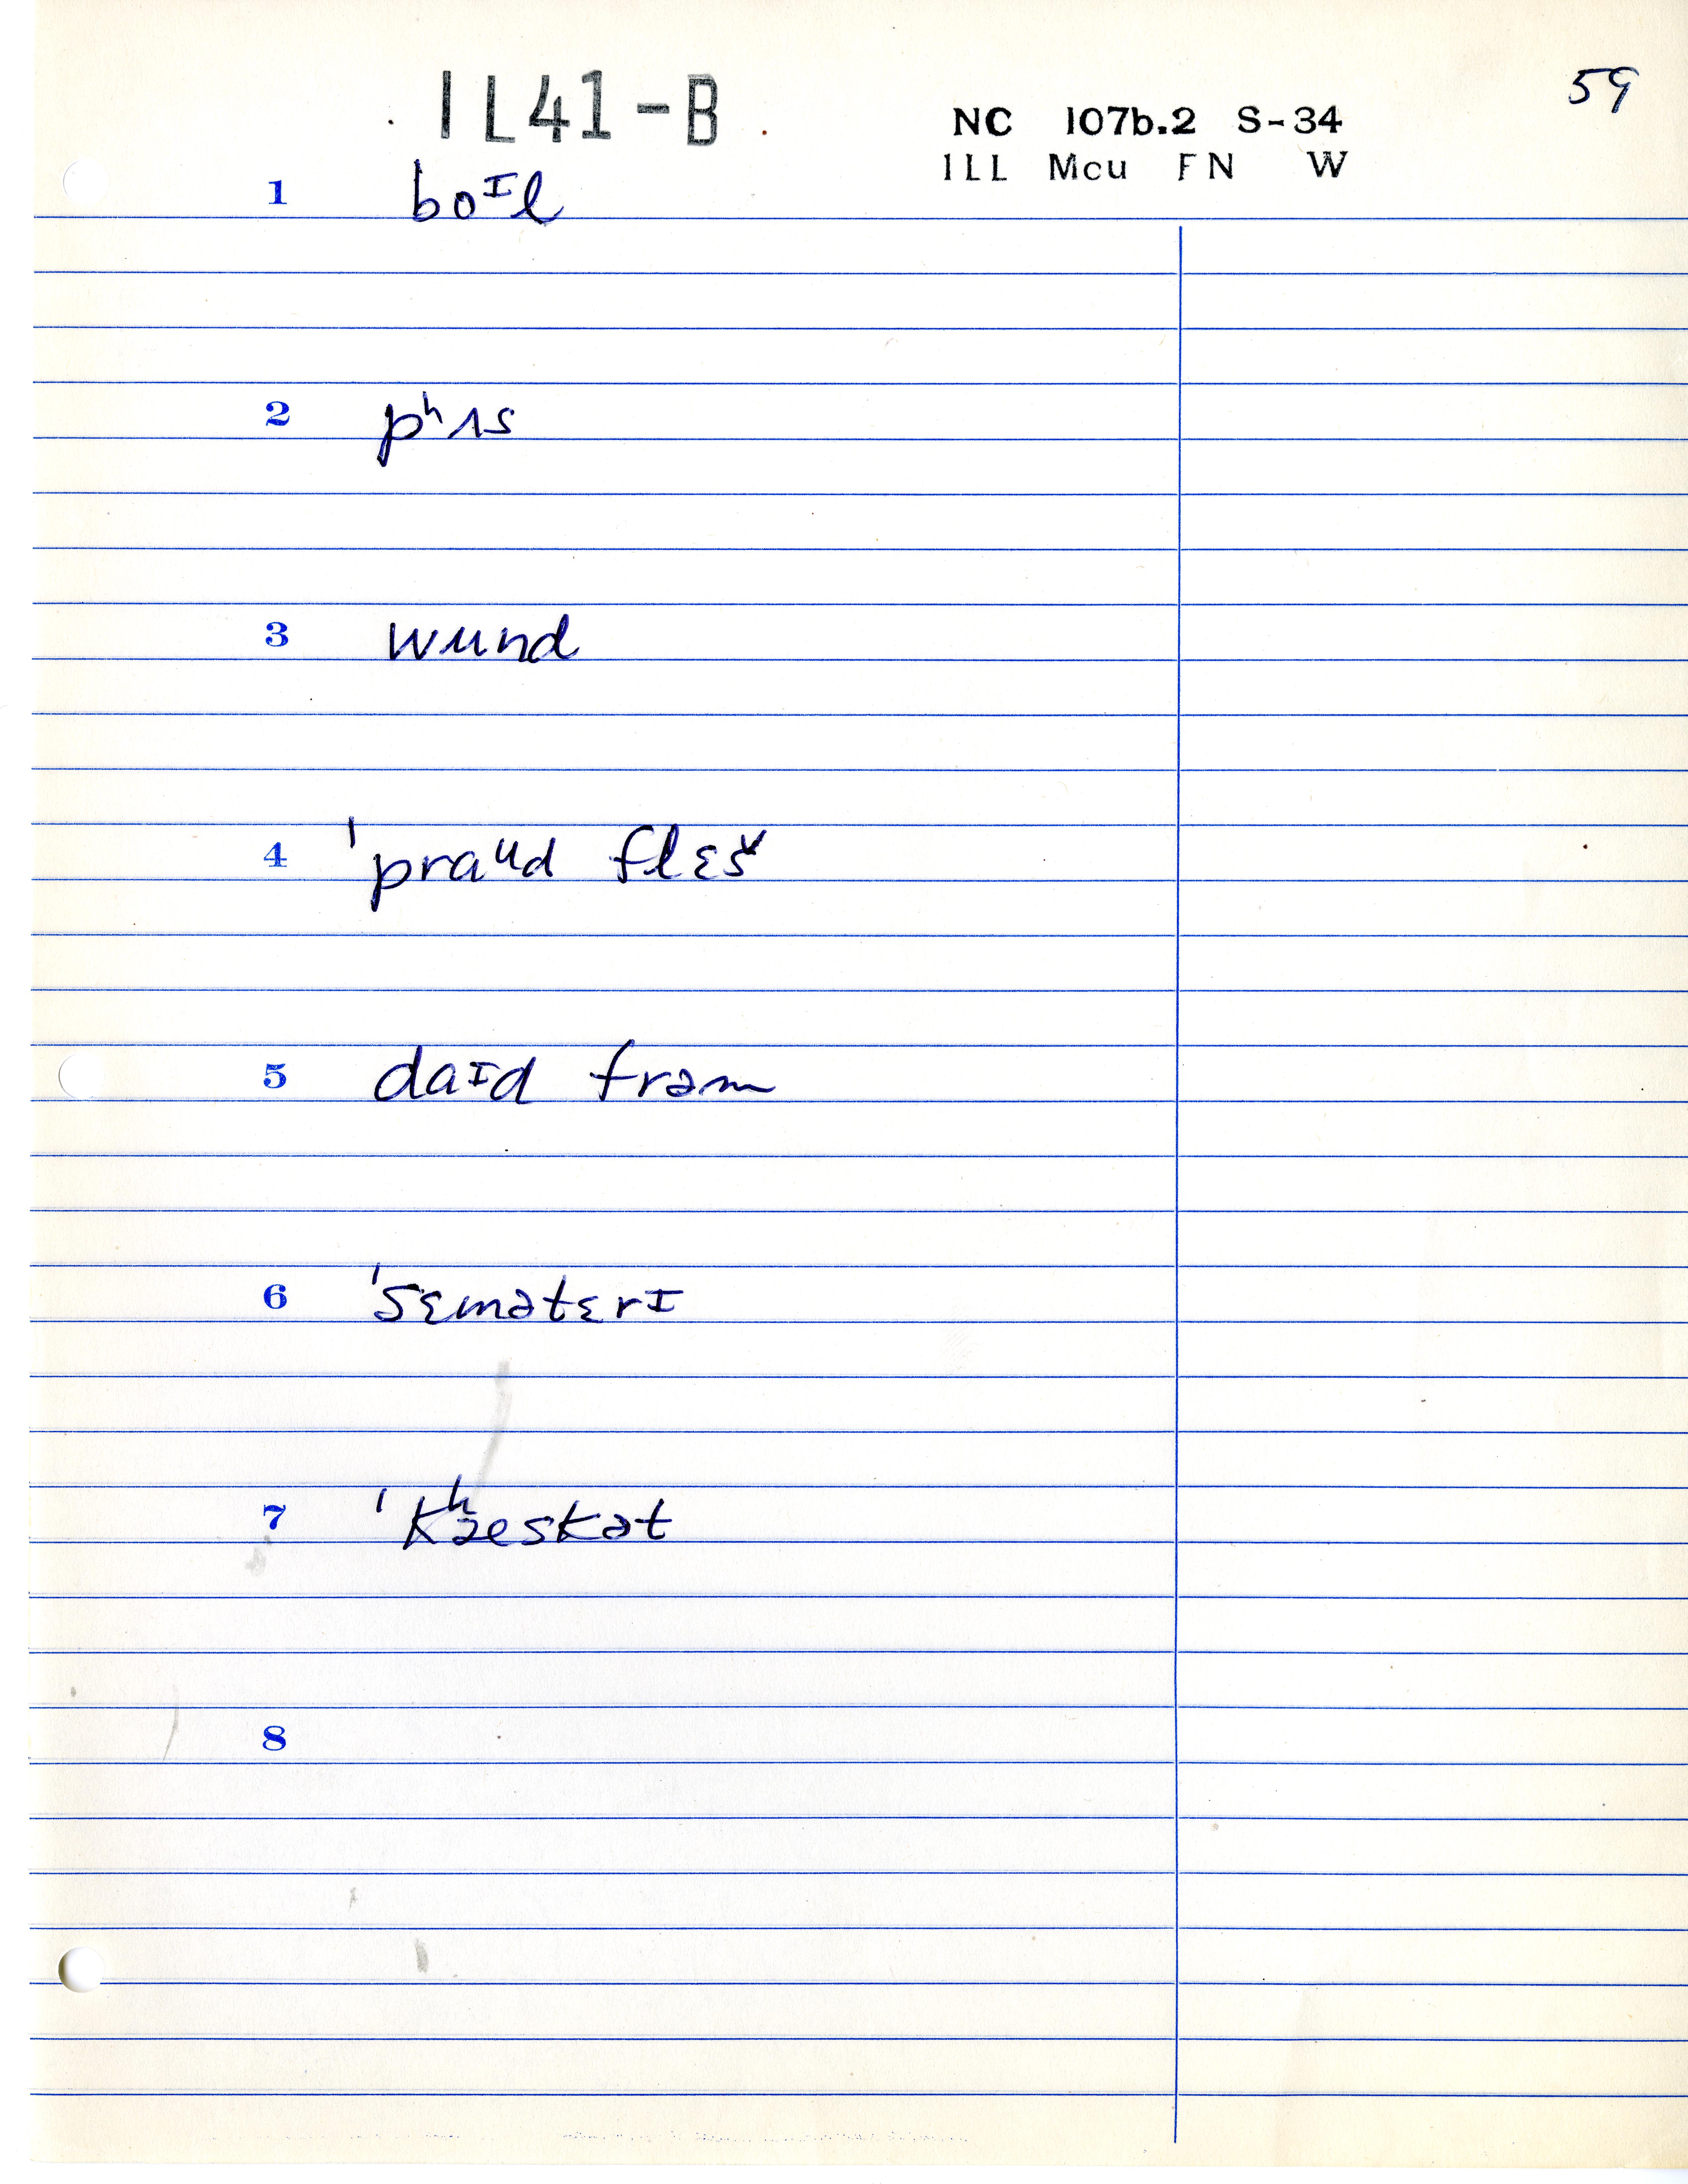 59
IL41-B
NC 107b.2 S-34
ILL Mcu FN W
1 boᶦl
2 pʰʌs
3 wund
4 ˈpraᵘd flɛš
5 daɪd frəm
6 ˈsɛmətɛrɪ
7 ˈkʰæskət
8